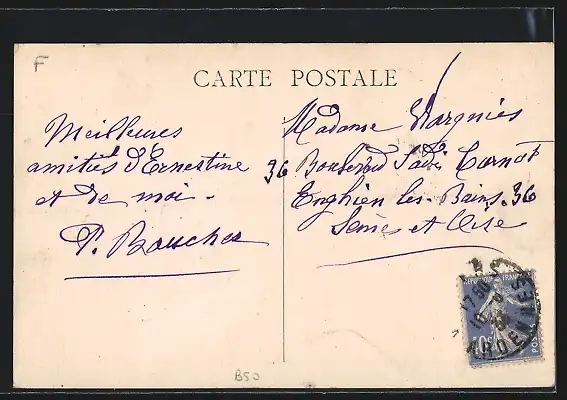 F
CARTE POSTALE
Meilleures
amitiés d'Ernestine
et de moi -
P. Boucher
Madame Wargnies
36 Boulevard Sadi Carnot
Enghien les-Bains. 36
Seine et Oise
REPUBLIQUE FRANÇAISE
40c
POSTES
ARDENNES
B50